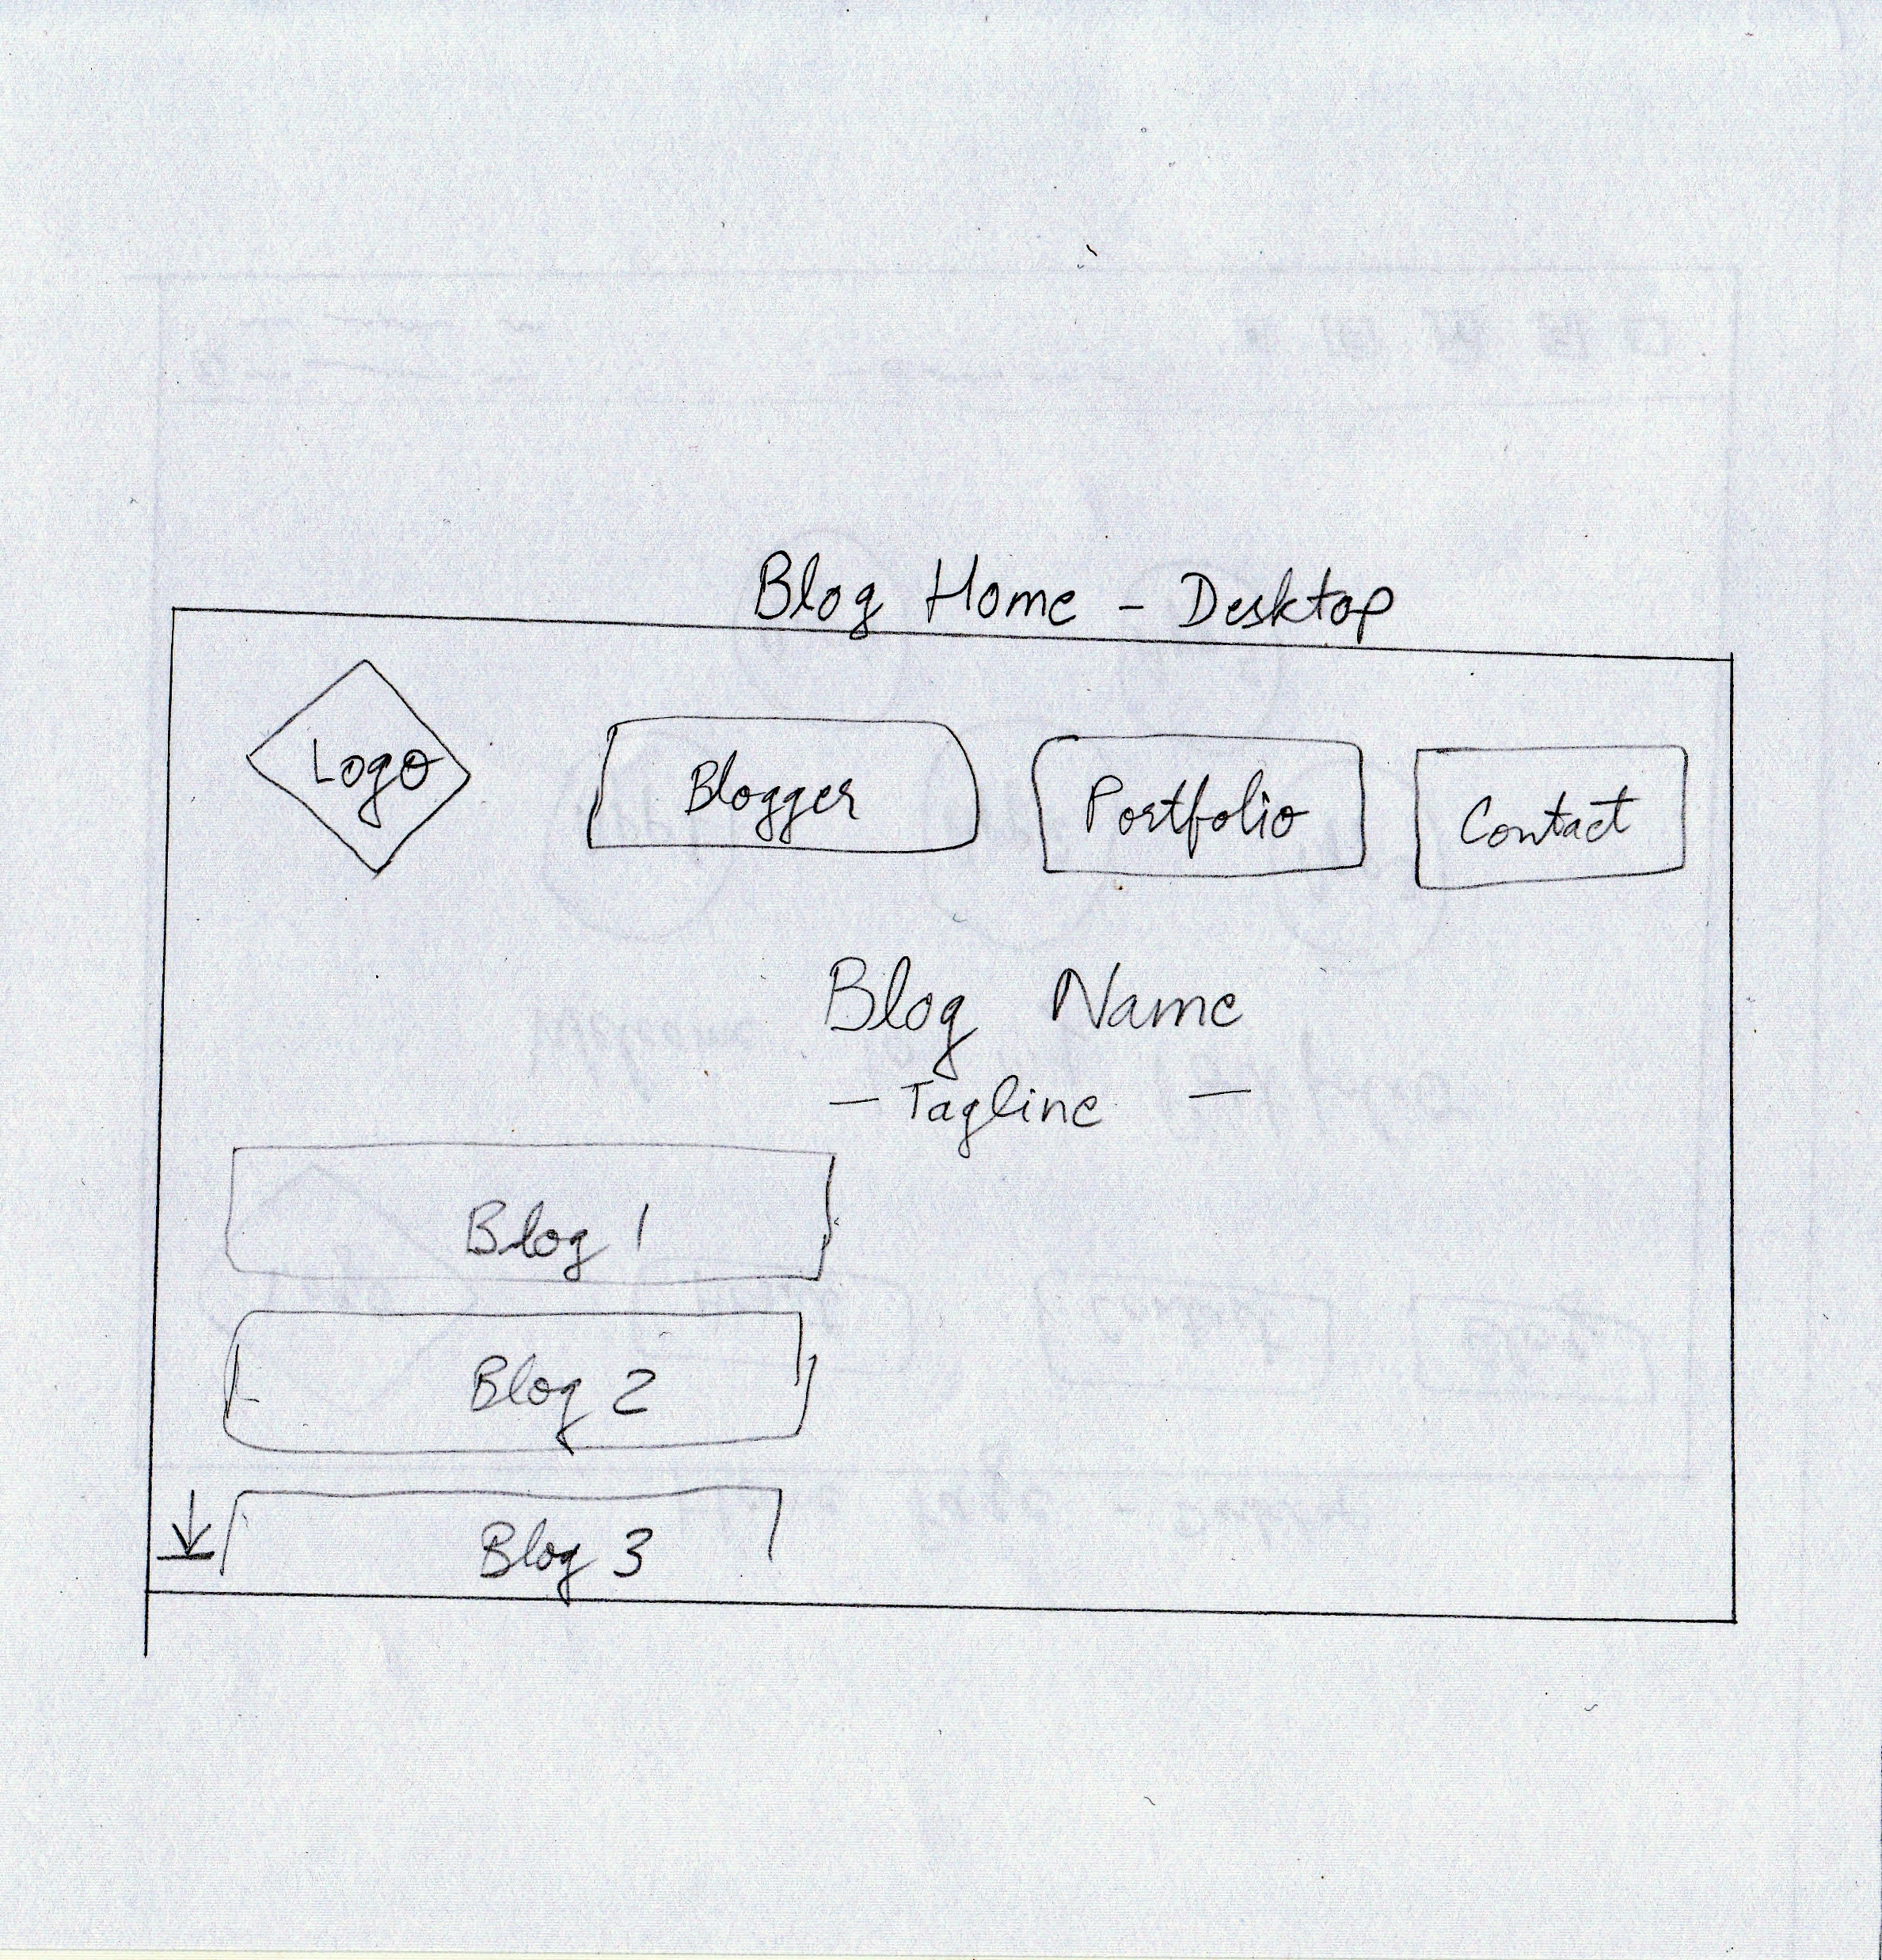 Blog Home - Desktop
Logo
Blogger
Portfolio
Contact
Blog Name
- Tagline -
Blog 1
Blog 2
Blog 3